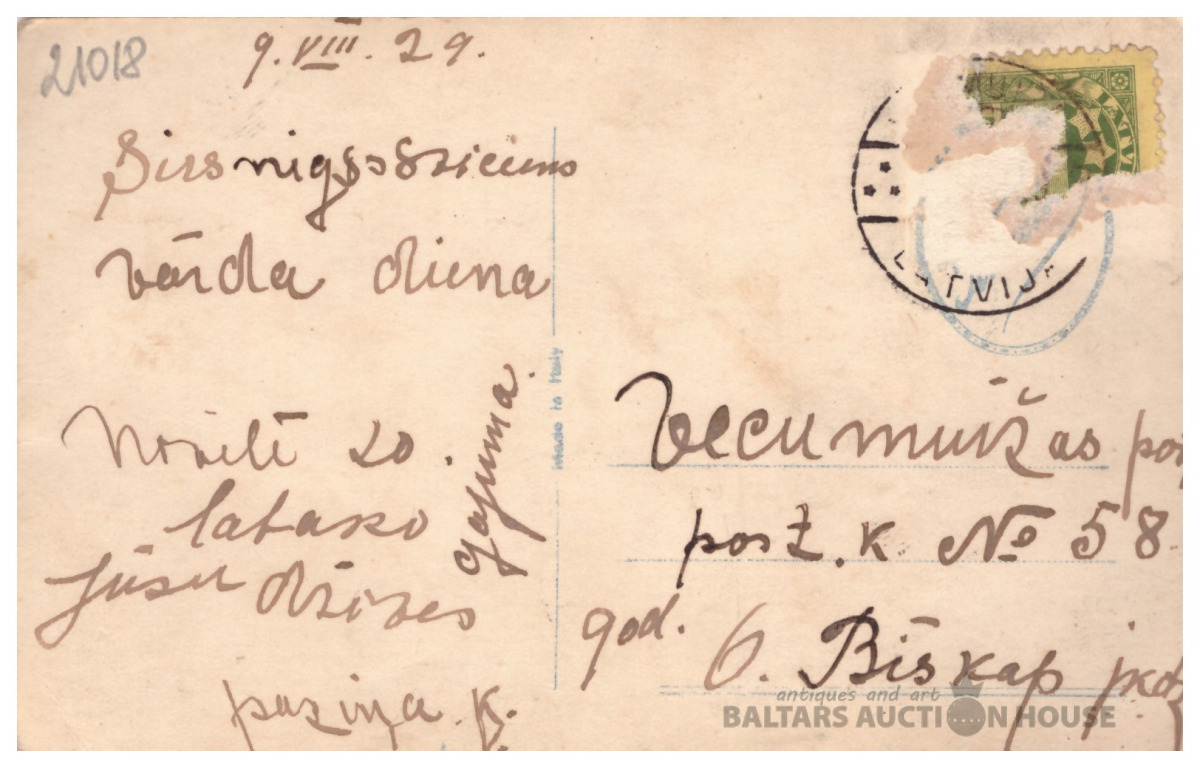 21018
9.VIII.29.
Sirsnigs sveiciens
Vārda diena
Novēlē Lo.
labako
Jūsu dzives
gajuma.
paziņa K.
Made in Italy
LATVIJA
LATVI
Vecumuižas
post. k. № 58
god.
O. Bīskap jkdz
antiques and art
BALTARS AUCTION HOUSE